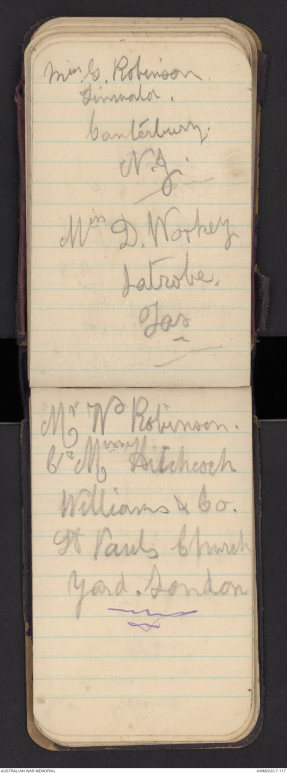 Miss G. Robinson.
Tinwald.
Canterbury.
N.Z.
Miss D. Workey
Latrobe.
Tas
Mr Wm Robinson.
C/o Messrs Hitchcock
Williams & Co.
St Pauls Church
Yard. London
AUSTRALIAN WAR MEMORIAL